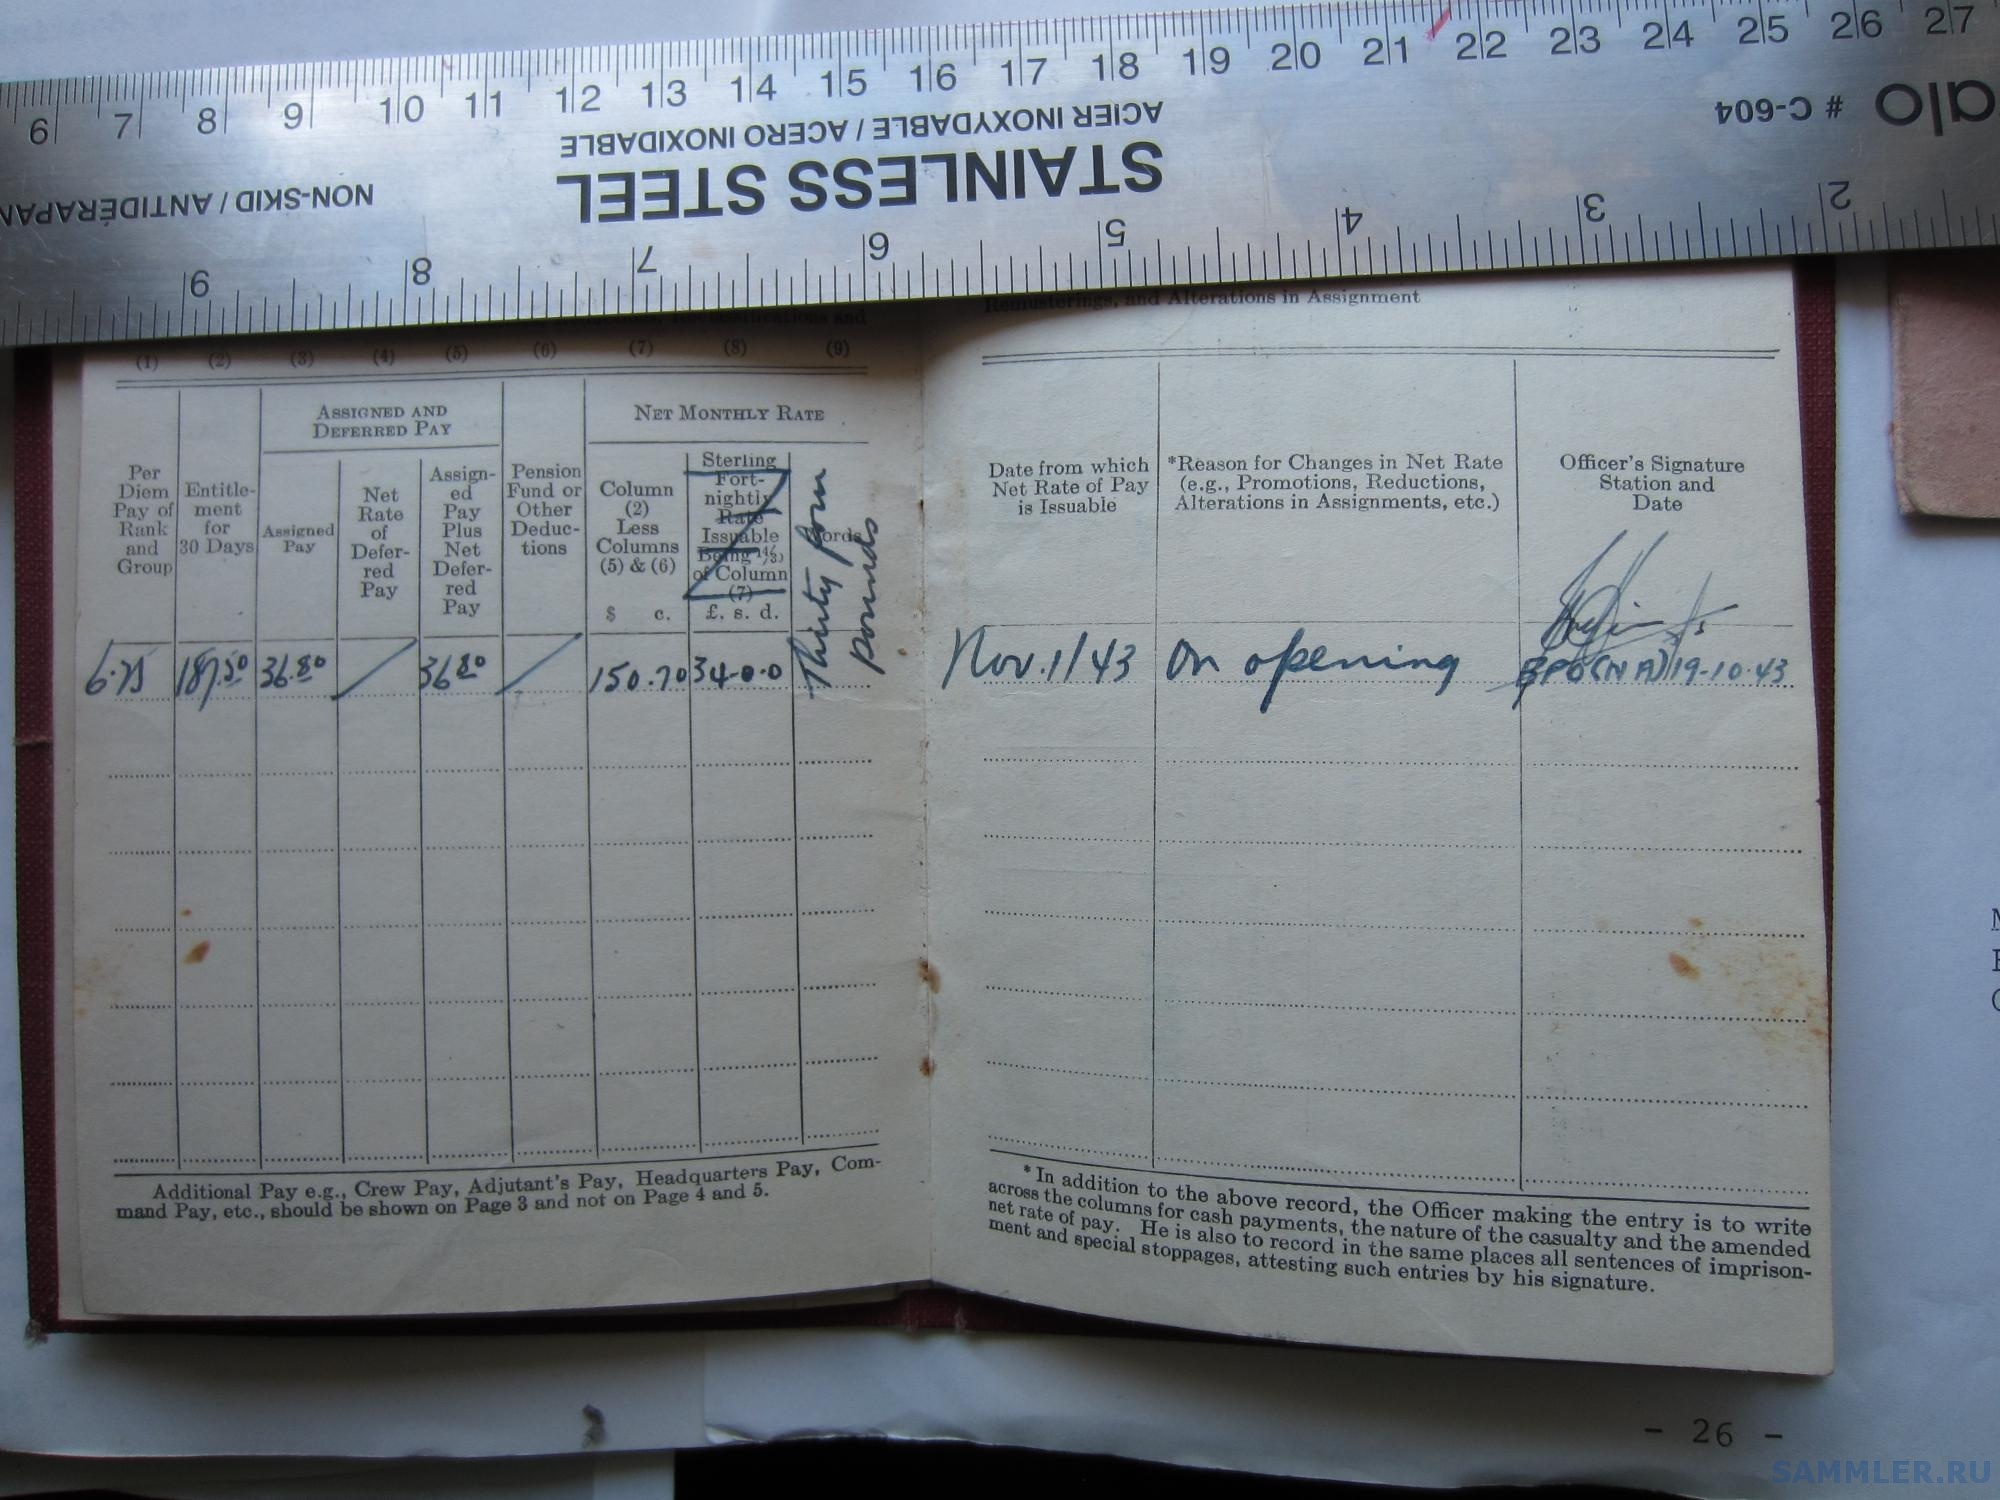 6 7 8 9 10 11 12 13 14 15 16 17 18 19 20 21 22 23 24 25 26 27
NON-SKID / ANTIDÉRAPAN
STAINLESS STEEL
ACIER INOXYDABLE / ACERO INOXIDABLE
# C-604
alo
9 8 7 6 5 4 3 2
and
Remusterings, and Alterations in Assignment
(1) (2) (3) (4) (5) (6) (7) (8) (9)
Per
Diem
Pay of
Rank
and
Group
Entitle-
ment
for
30 Days
ASSIGNED AND
DEFERRED PAY
Assigned
Pay
Net
Rate
of
Defer-
red
Pay
Assign-
ed
Pay
Plus
Net
Defer-
red
Pay
Pension
Fund or
Other
Deduc-
tions
NET MONTHLY RATE
Column
(2)
Less
Columns
(5) & (6)
$ c.
Sterling
Fort-
nightly
Rate
Issuable
Being 14/30
of Column
(7)
£. s. d.
Words
6.75 187.50 36.80 36.80 150.70 34-0-0
Thirty four
pounds
Additional Pay e.g., Crew Pay, Adjutant's Pay, Headquarters Pay, Com-
mand Pay, etc., should be shown on Page 3 and not on Page 4 and 5.
Date from which
Net Rate of Pay
is Issuable
*Reason for Changes in Net Rate
(e.g., Promotions, Reductions,
Alterations in Assignments, etc.)
Officer's Signature
Station and
Date
Nov. 1/43 On opening BPO (NA) 19-10-43
* In addition to the above record, the Officer making the entry is to write
across the columns for cash payments, the nature of the casualty and the amended
net rate of pay. He is also to record in the same places all sentences of imprison-
ment and special stoppages, attesting such entries by his signature.
- 26 -
SAMMLER.RU